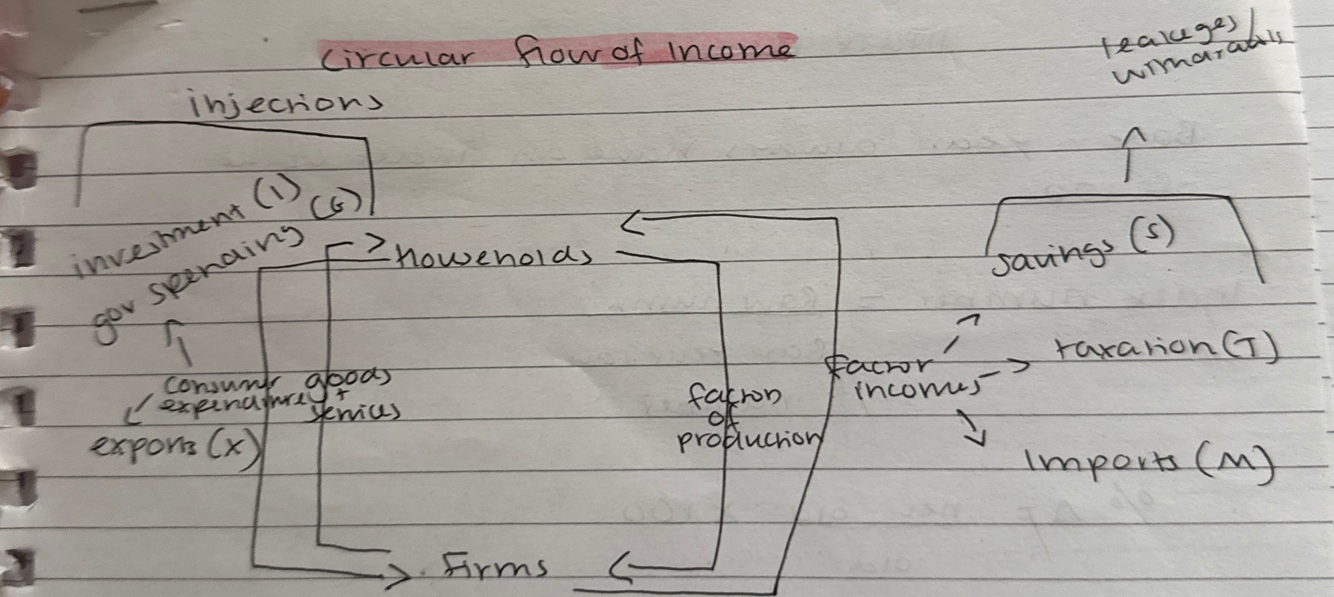 Circular flow of Income
leakages/
withdrawals
injections
investment (I)
gov spending (G)
households
savings (S)
consumer
expenditure
goods
+
services
exports (X)
factors
of
production
factor
incomes
taxation (T)
Imports (M)
Firms